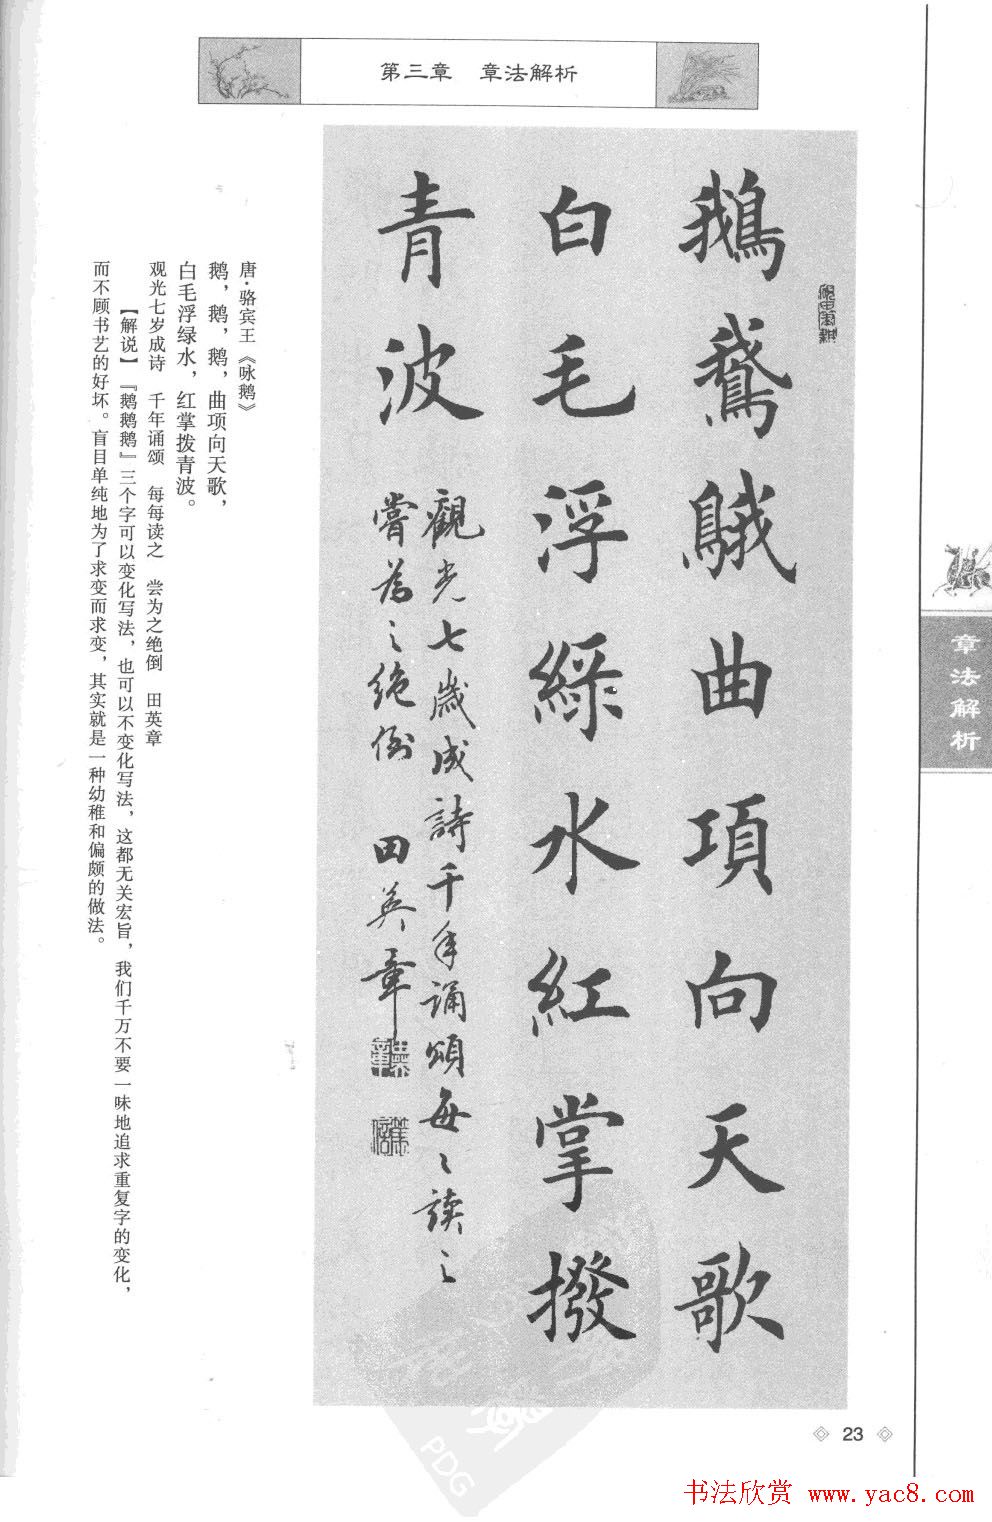 第三章 章法解析
鵝鵞䳘曲項向天歌
白毛浮綠水紅掌撥
青波
觀光七歲成詩千年誦頌每〻读之
嘗為之绝倒 田英章
唐·骆宾王《咏鹅》
鹅，鹅，鹅，曲项向天歌，
白毛浮绿水，红掌拨青波。
观光七岁成诗 千年诵颂 每每读之 尝为之绝倒 田英章
【解说】『鹅鹅鹅』三个字可以变化写法，也可以不变化写法，这都无关宏旨，我们千万不要一味地追求重复字的变化，
而不顾书艺的好坏。盲目单纯地为了求变而求变，其实就是一种幼稚和偏颇的做法。
章法解析
23
PDG
书法欣赏 www.yac8.com